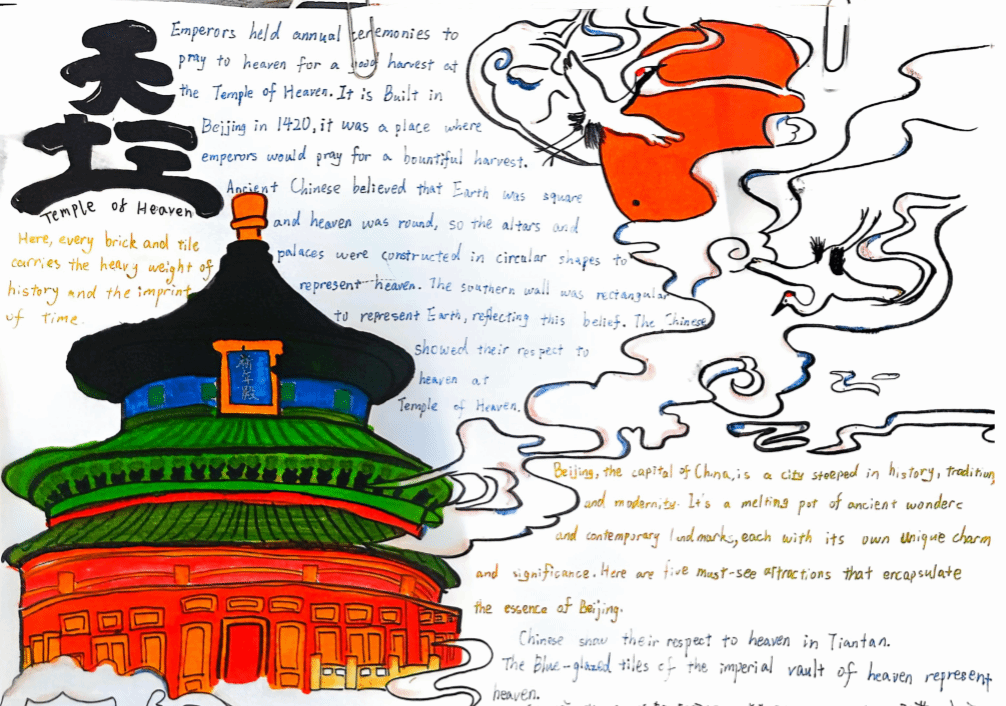 天
坛
Temple of Heaven
Here, every brick and tile
carries the heavy weight of
history and the imprint
of time.
Emperors held annual ceremonies to
pray to heaven for a good harvest at
the Temple of Heaven. It is Built in
Beijing in 1420, it was a place where
emperors would pray for a bountiful harvest.
Ancient Chinese believed that Earth was square
and heaven was round, so the altars and
palaces were constructed in circular shapes to
represent heaven. The southern wall was rectangular
to represent Earth, reflecting this belief. The Chinese
showed their respect to
heaven at
Temple of Heaven.
祈年殿
Beijing, the capital of China, is a city steeped in history, tradition,
and modernity. It's a melting pot of ancient wonders
and contemporary landmarks, each with its own unique charm
and significance. Here are five must-see attractions that encapsulate
the essence of Beijing.
Chinese show their respect to heaven in Tiantan.
The Blue-glazed tiles of the imperial vault of heaven represent
heaven.